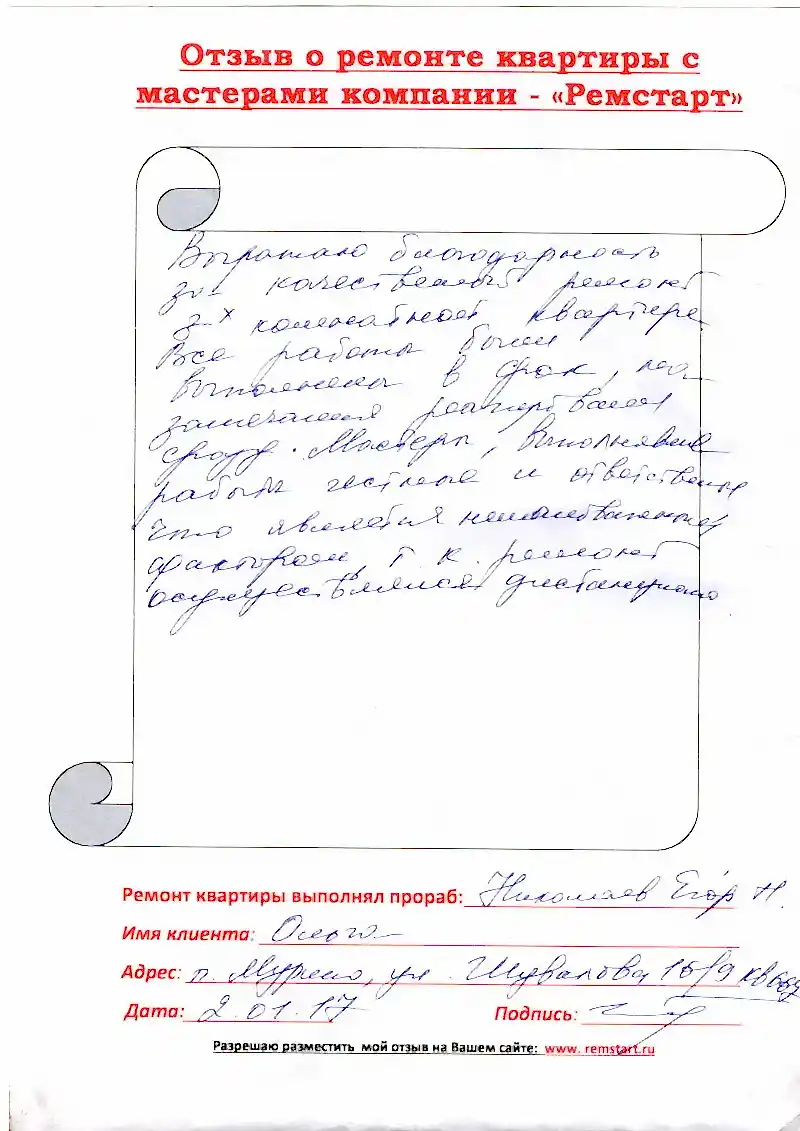 Отзыв о ремонте квартиры с
мастерами компании - «Ремстарт»
Выражаю благодарность
за качественный ремонт
2-х комнатной квартире
Все работы были
выполнены в срок, на
замечания реагировали
сразу. Мастеры, выполнявшие
работы честные и ответственные
что является немаловажным
фактором, т к. ремонт
осуществлялся дистанционно
Ремонт квартиры выполнял прораб: Николаев Егор Н.
Имя клиента: Ольга
Адрес: п. Мурино, ул. Шувалова 16/9 кв
Дата: 2.01.17 Подпись:
Разрешаю разместить мой отзыв на Вашем сайте: www. remstart.ru